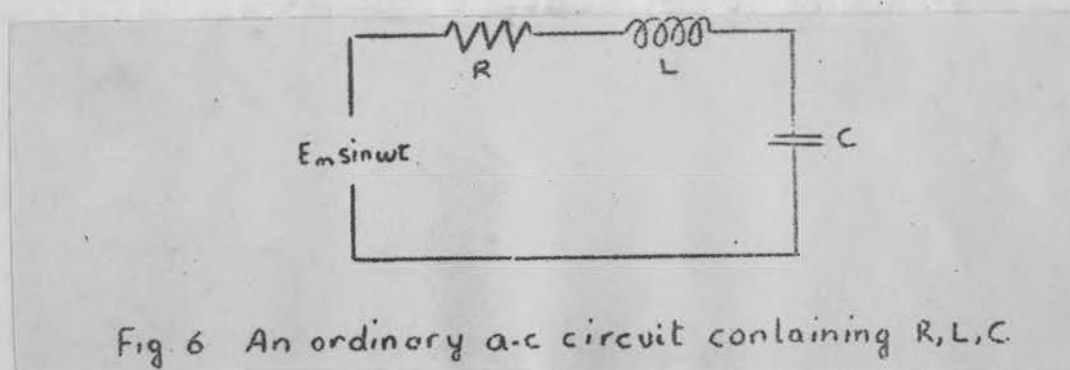 R
L
C
Eₘ sinωt
Fig. 6 An ordinary a-c circuit containing R, L, C.